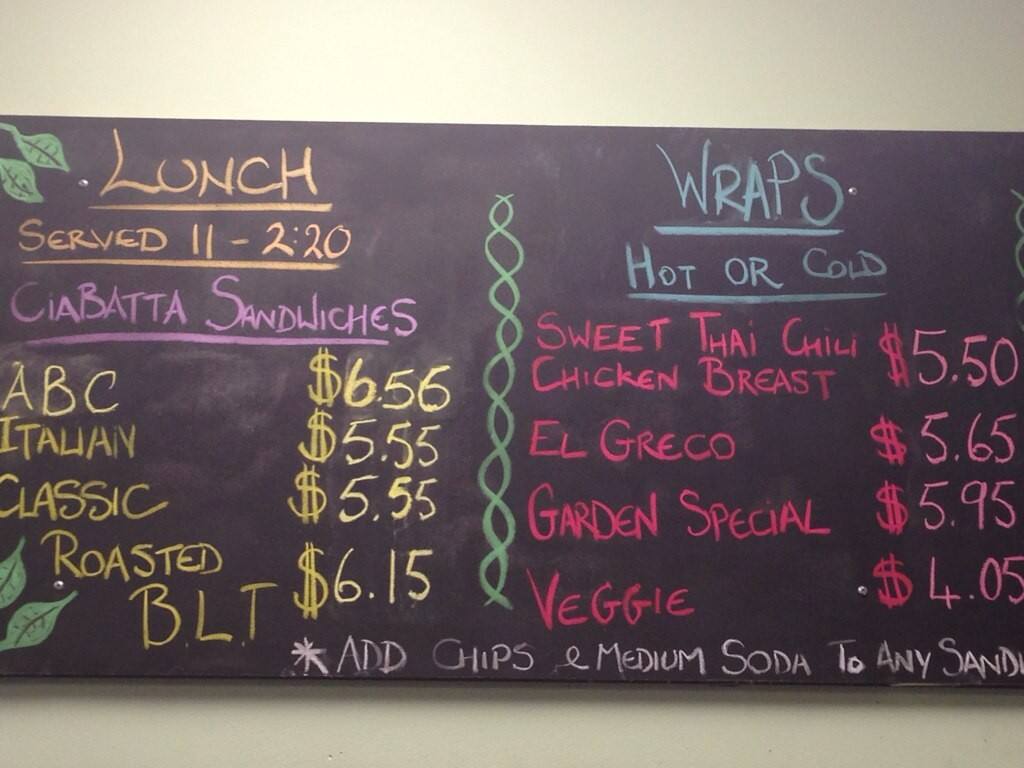 LUNCH
SERVED 11 - 2:20
CIABATTA SANDWICHES
ABC $6.56
ITALIAN $5.55
CLASSIC $5.55
ROASTED
B.L.T $6.15
WRAPS
HOT OR COLD
SWEET THAI CHILI
CHICKEN BREAST $5.50
EL GRECO $5.65
GARDEN SPECIAL $5.95
VEGGIE $4.05
* ADD CHIPS & MEDIUM SODA TO ANY